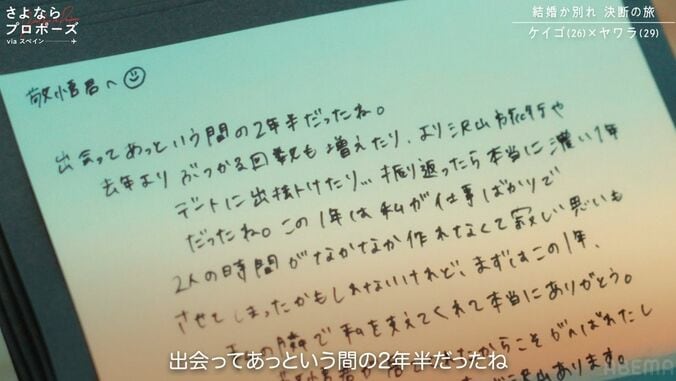 さよなら
プロポーズ
via スペイン
結婚か別れ 決断の旅
ケイゴ(26)×ヤワラ(29)
敬悟君へ☺
出会ってあっという間の2年半だったね。
去年よりぶつかる回数も増えたり、より沢山お旅行や
デートに出掛けたり... 振り返ったら本当に濃い1年
だったね。この1年は私が仕事ばかりで
2人の時間がなかなか作れなくて寂しい思いも
させてしまったかもしれないけれど、まずはこの1年、
隣で私を支えてくれて本当にありがとう。
からこそがんばれたし
沢山あります。
出会ってあっという間の2年半だったね
ABEMA